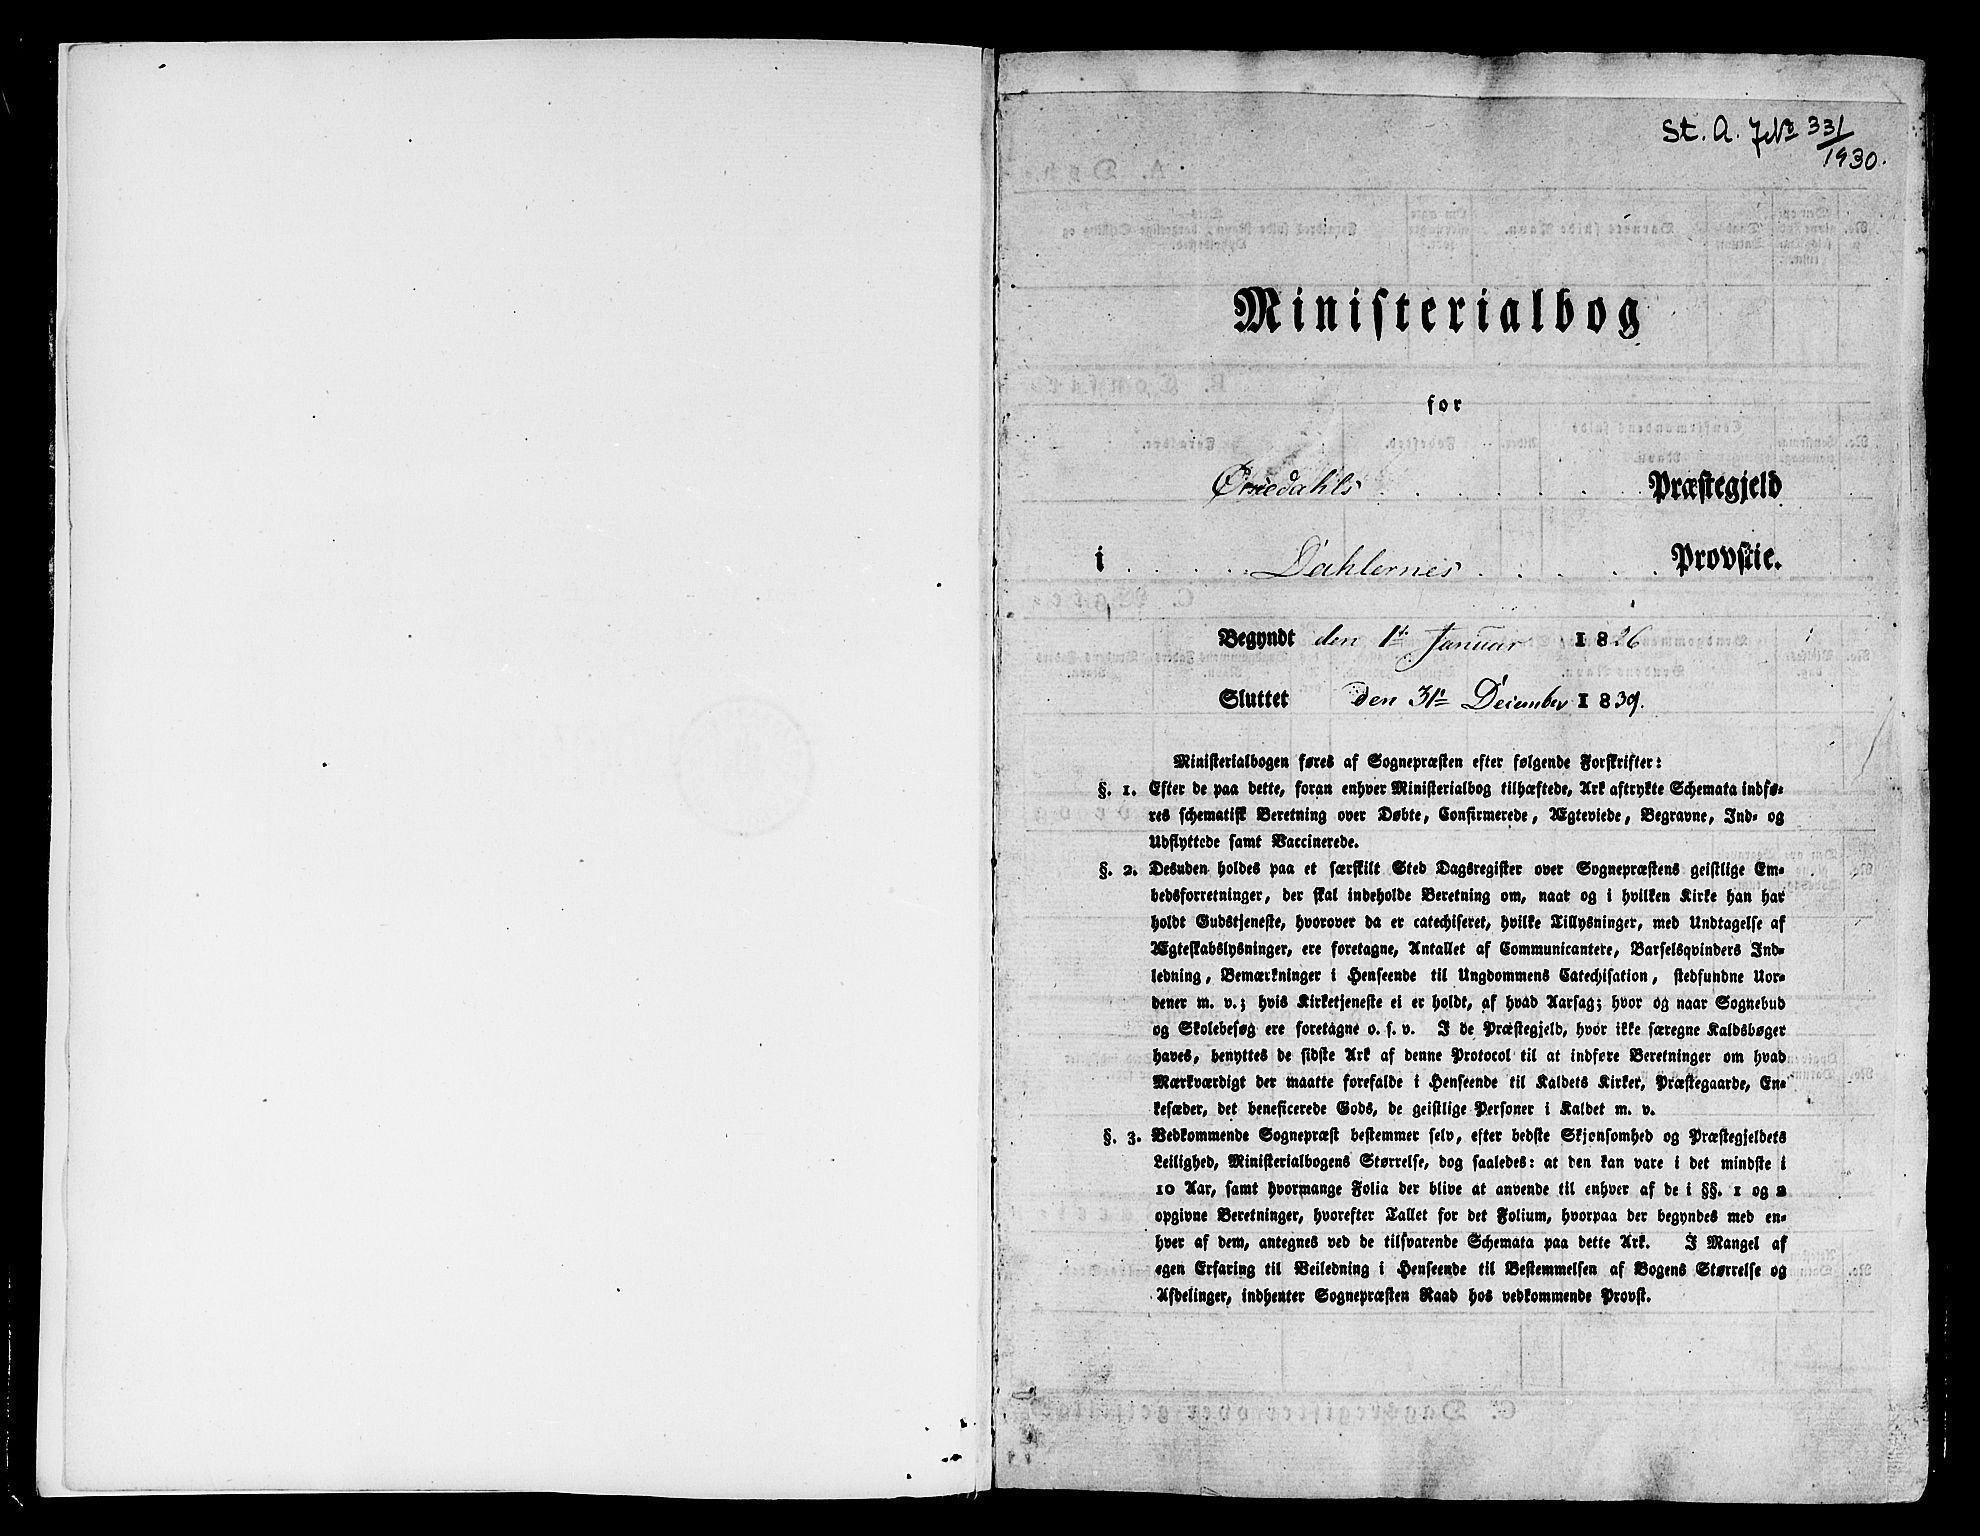 St. A. JNo 331/1930.
Ministerialbog
for
Ørkedahls Præstegjeld
i Dahlernes Provstie.
Begyndt den 1ste Januar 1826
Sluttet den 31te December 1839.
Ministerialbogen føres af Sognepræsten efter følgende Forskrifter:
§. 1. Efter de paa dette, foran enhver Ministerialbog tilhæftede, Ark aftrykte Schemata indfø-
res schematisk Beretning over Døbte, Confirmerede, Ægteviede, Begravne, Ind- og
Udflyttede samt Vaccinerede.
§. 2. Desuden holdes paa et særskilt Sted Dagsregister over Sognepræstens geistlige Em-
bedsforretninger, der skal indeholde Beretning om, naar og i hvilken Kirke han har
holdt Gudstjeneste, hvorover da er catechiseret, hvilke Tillysninger, med Undtagelse af
Ægteskabslysninger, ere foretagne, Antallet af Communicantere, Barselqvinders Ind-
ledning, Bemærkninger i Henseende til Ungdommens Catechisation, stedfundne Uor-
dener m. v.; hvis Kirketjeneste ei er holdt, af hvad Aarsag; hvor og naar Sognebud
og Skolebesøg ere foretagne o. s. v. I de Præstegjeld, hvor ikke særegne Kaldsbøger
haves, benyttes de sidste Ark af denne Protocol til at indføre Beretninger om hvad
Mærkværdigt der maatte forefalde i Henseende til Kaldets Kirker, Præstegaarde, En-
kesæder, det beneficerede Gods, de geistlige Personer i Kaldet m. v.
§. 3. Vedkommende Sognepræst bestemmer selv, efter bedste Skjønsomhed og Præstegjeldets
Leilighed, Ministerialbogens Størrelse, dog saaledes: at den kan vare i det mindste i
10 Aar, samt hvormange Folia der blive at anvende til enhver af de i §§. 1 og 2
opgivne Beretninger, hvorefter Tallet for det Folium, hvorpaa der begyndes med en-
hver af dem, antegnes ved de tilsvarende Schemata paa dette Ark. I Mangel af
egen Erfaring til Veiledning i Henseende til Bestemmelsen af Bogens Størrelse og
Afdelinger, indhenter Sognepræsten Raad hos vedkommende Provst.